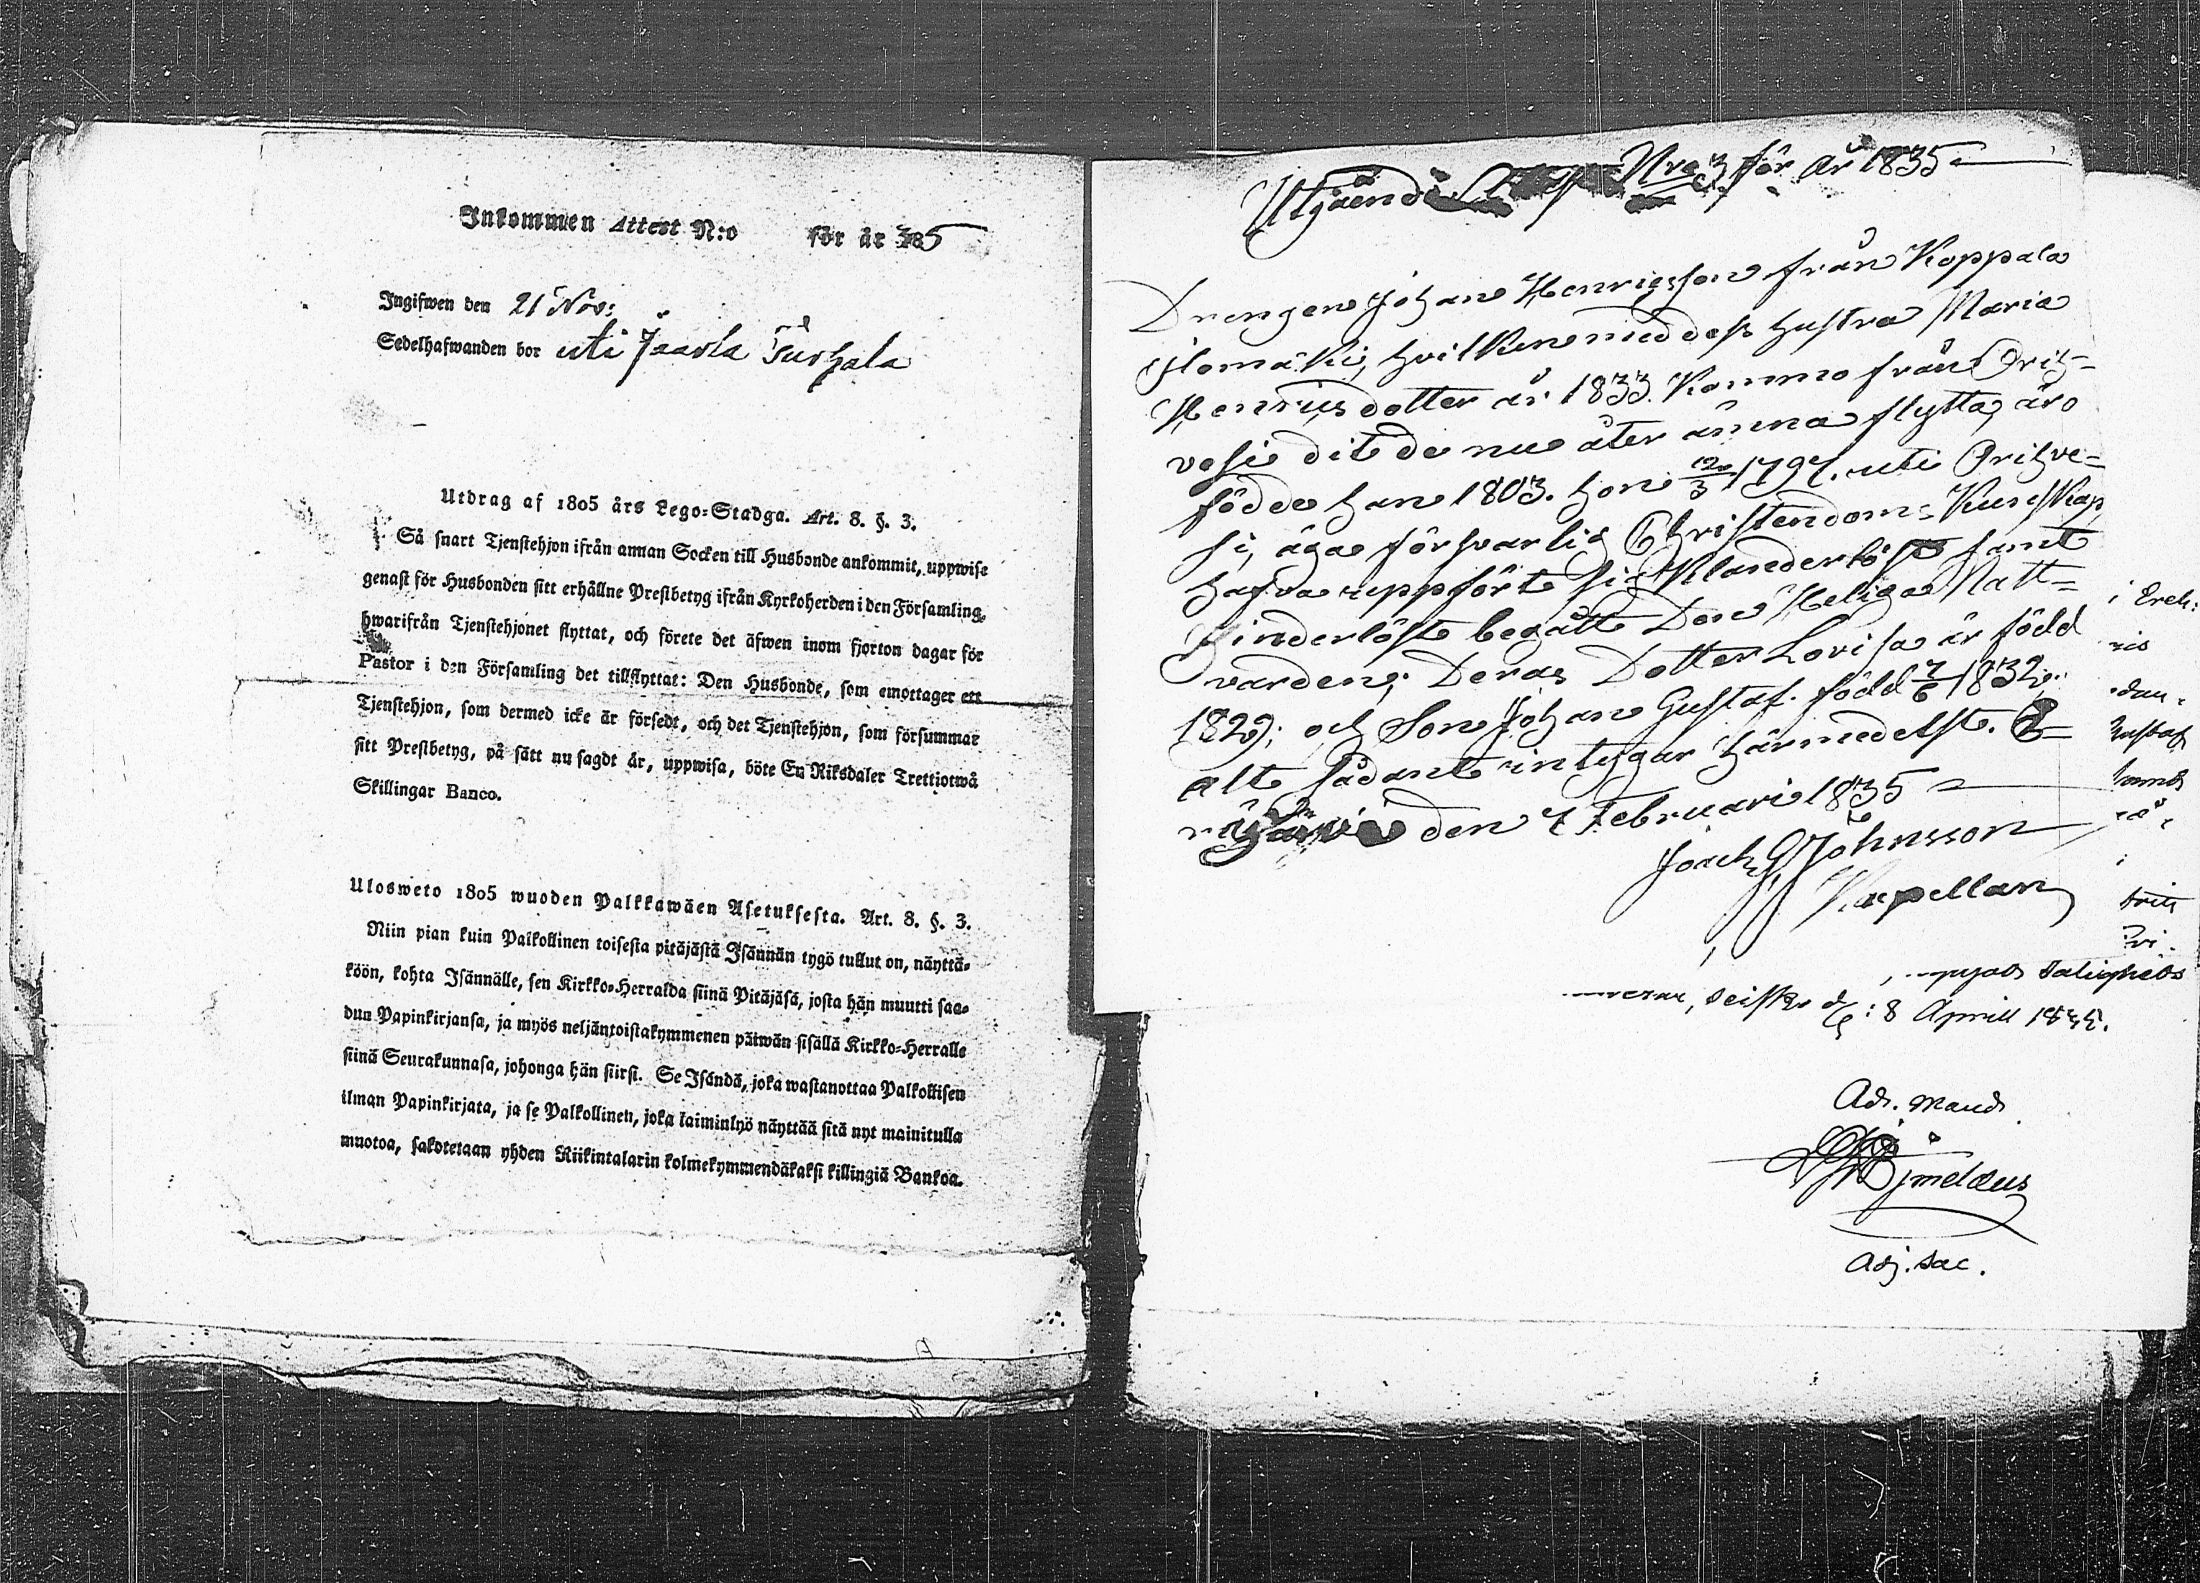 Inkommen Attest N:o för år 1835
Ingifwen den 21 Nov:
Sedelhafwanden bor uti Jaarla Turhala
Utdrag af 1805 års Lego-Stadga. Art. 8. §. 3.
Så snart Tjenstehjon ifrån annan Socken till Husbonde ankommit, uppwise
genast för Husbonden sitt erhållne Prestbetyg ifrån Kyrkoherden i den Församling,
hwarifrån Tjenstehjonet flyttat, och förete det äfwen inom fjorton dagar för
Pastor i den Församling det tillflyttat: Den Husbonde, som emottager ett
Tjenstehjon, som dermed icke är försedt, och det Tjenstehjon, som försummar
sitt Prestbetyg, på sätt nu sagdt är, uppwisa, böte En Riksdaler Trettiotwå
Skillingar Banco.
Ulosweto 1805 wuoden Palkkawäen Asetuksesta. Art. 8. §. 3.
Niin pian kuin Palkollinen toisesta pitäjästä Isännän tygö tullut on, näyttä-
köön, kohta Isännälle, sen Kirkko-Herralda siinä Pitäjäsä, josta hän muutti saa-
dun Papinkirjansa, ja myös neljäntoistakymmenen päiwän sisällä Kirkko-Herralle
siinä Seurakunnasa, johonga hän siirsi. Se Isändä, joka wastanottaa Palkollisen
ilman Papinkirjata, ja se Palkollinen, joka laiminlyö näyttää sitä nyt mainitulla
muotoa, sakotetaan yhden Riikintalarin kolmekymmendäkaksi killingiä Bankoa.
Utgående Nro 3 för år 1835
Drengen Johan Henricsson från Koppala
Ilomäki, hvilken med dess hustru Maria
Henricsdotter år 1833. Kommo från Orih-
vesi dit de nu åter ämna flytta, äro
födde han 1803. hon 12/3 1797. uti Orihve-
si, äga försvarlig Christendoms Kunskap
hafva uppfört sig Klanderlöst samt
hinderlöst begått Den Heliga Natt-
varden; Deras Dotter Lovisa är född
1829; och Son Johan Gustaf född 7/6 1832,
alt sådant intygar härmedelst.
den 7 Februari 1835
Joach. G. Johnsson
Kapellan
i Ereh:
ris
dan
Gustaf
salighets
8 Aprill 1835.
Adr. Mand.
Bjmelæus
Adj. Sac.